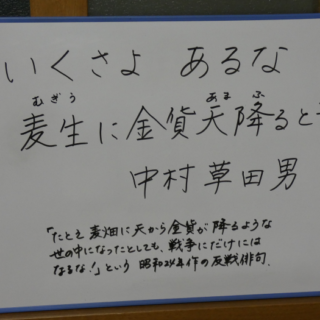 いくさよ あるな
むぎう あまふ
麦生に金貨天降ると
中村草田男
「たとえ麦畑に天から金貨が降るような
世の中になったとしても、戦争にだけには
なるな!」という 昭和24年作の反戦俳句.